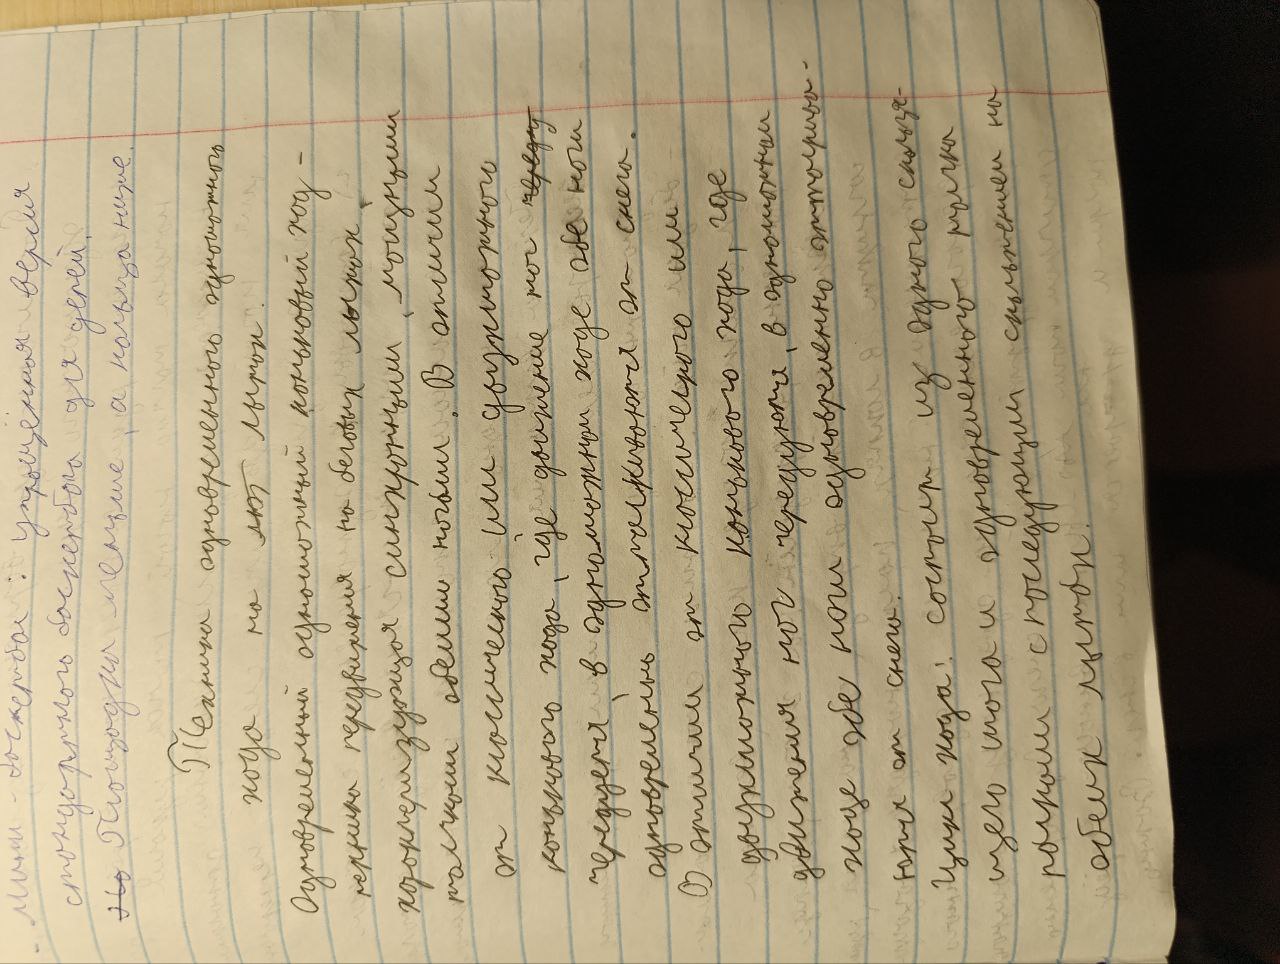 - Мини-баскетбол: упрощённая версия
стандартного баскетбола для детей.
Площадки меньше, а кольца ниже.
Техника одновременного одношажного
хода на лыжах.
Одновременный одношажный коньковый ход -
техника передвижения на беговых лыжах,
характеризующаяся синхронными, мощными
толчками обеими ногами. В отличии
от классического или двухшажного
конькового хода, где движение ног
чередуется, в одношажном ходе обе ноги
одновременно отталкиваются от снега.
В отличии от классического или
двухшажного конькового хода, где
движения ног чередуются, в одношажном
ходе обе ноги одновременно отталкива-
ются от снега.
Цикл хода: состоит из одного скользя-
щего шага и одновременного толчка
руками с последующим скольжением на
обеих лыжах.